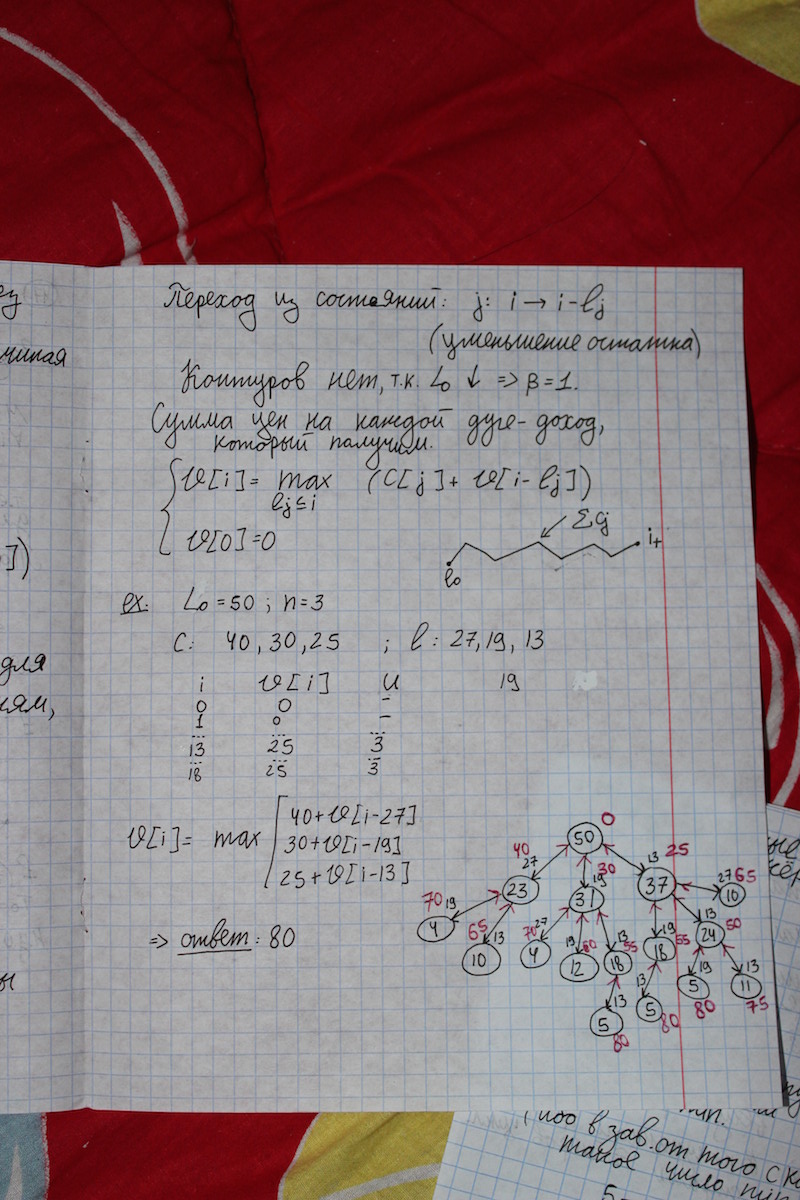 Переход из состояний: j: i → i-lj
(уменьшение остатка)
Контуров нет, т.к. L₀ ↓ => β=1.
Сумма цен на каждой дуге - доход,
который получим.
v[i]= max (C[j]+ v[i-lj])
lj≤i
v[0]=0
Σcj
l₀
ex: L₀=50 ; n=3
C: 40, 30, 25 ; l: 27, 19, 13
i v[i] u 19
0 0 -
1 0 -
... ... ...
13 25 3
... ... ...
18 25 3
v[i]= max
40+v[i-27]
30+v[i-19]
25+v[i-13]
=> ответ: 80
50 0
40 27 19 30 13 25
23 31 37 27 65 10
70 19 65 13 70 27 19 80 13 55 19 55 13 50
4 10 4 12 18 18 24
13 13 19 13
5 80 5 80 5 80 11 75
ез
чиная
])
для
ням,
ы
ные
в зав. от того с к
такое число